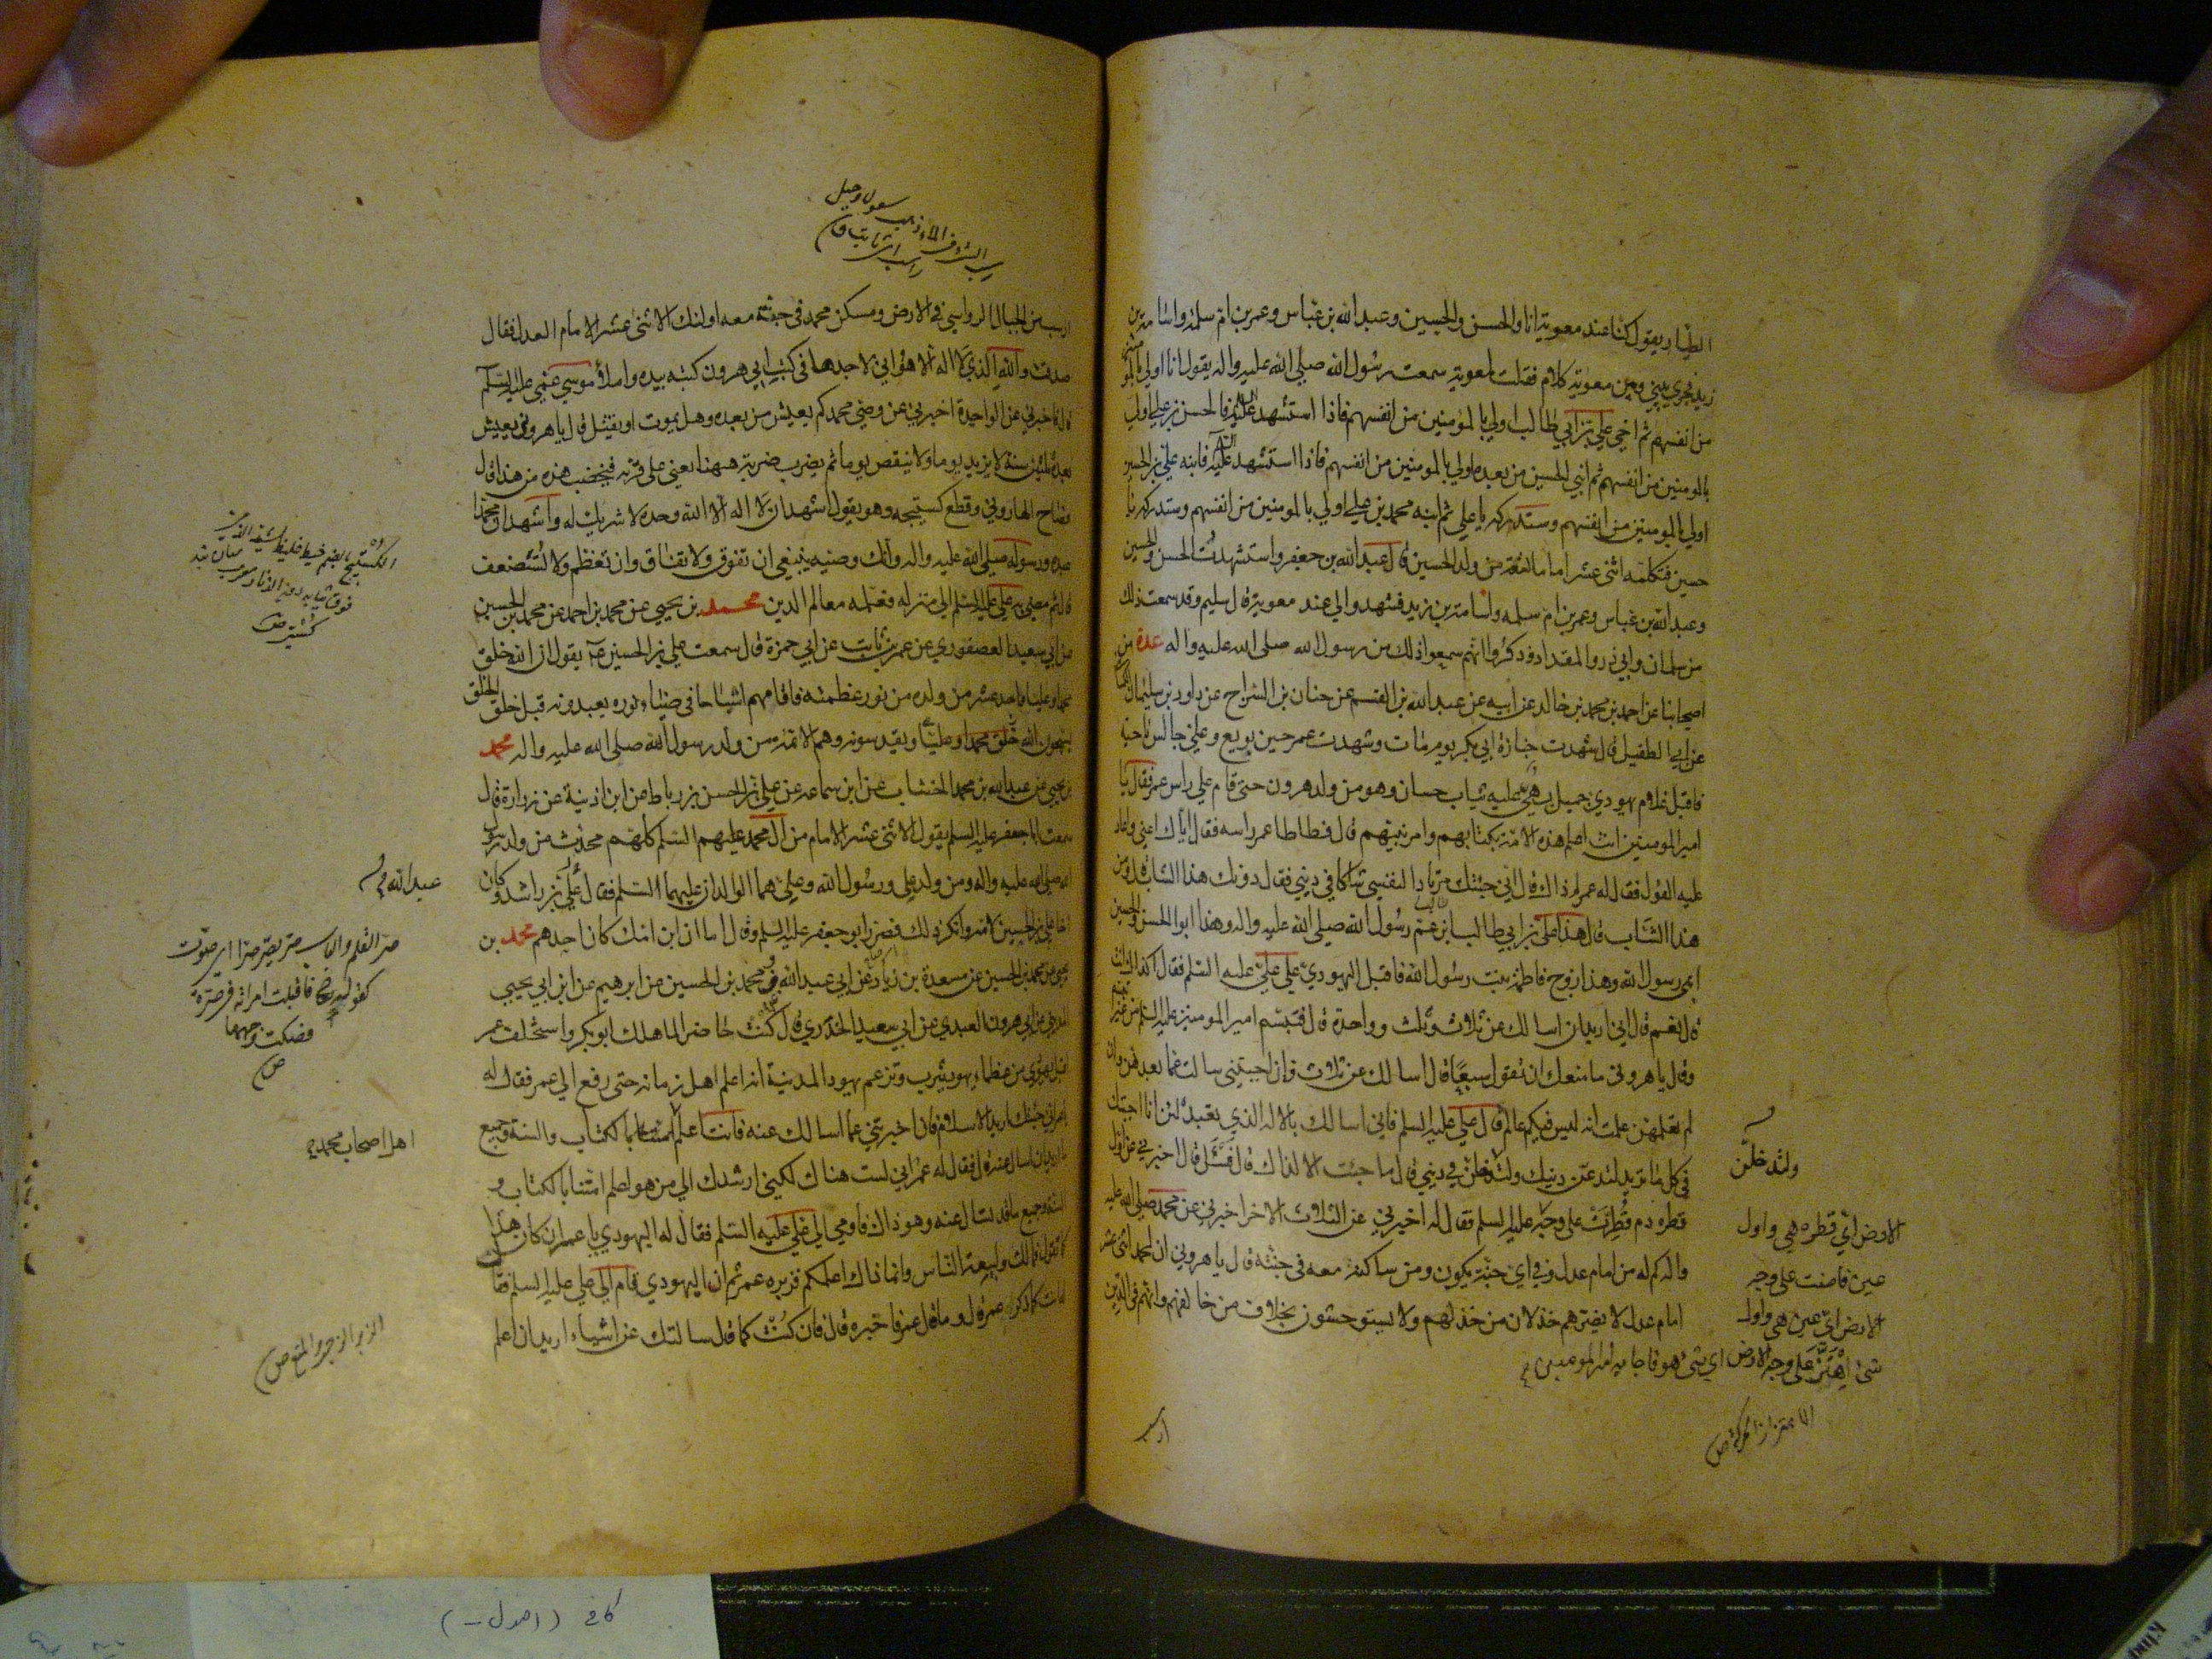 الطيار يقول كنا عند معوية انا والحسن والحسين وعبد الله بن عباس وعمر بن ام سلمة واسامة بن
زيد فجرى بيني وبين معوية كلام فقلت لمعوية سمعت رسول الله صلى الله عليه واله يقول انا اولى بالمؤمنين
من انفسهم ثم اخي علي بن ابي طالب اولى بالمؤمنين من انفسهم فاذا استشهد علي فالحسن بن علي اولى
بالمومنين من انفسهم ثم ابني الحسين من بعده اولى بالمومنين من انفسهم فاذا استشهد فابنه علي بن الحسين
اولى بالمومنين من انفسهم وستدركه يا علي ثم ابنه محمد بن علي اولى بالمومنين من انفسهم وستدركه يا
حسين فتكلمه اثنى عشر اماما تسعة من ولد الحسين قال عبد الله بن جعفر واستشهدت الحسن والحسين
وعبد الله بن عباس وعمر بن ام سلمه واسامة بن زيد فشهدوا لي عند معوية قال سليم وقد سمعت ذلك
من سلمان وابي ذر والمقداد وذكروا انهم سمعوا ذلك من رسول الله صلى الله عليه واله عدة من
اصحابنا عن احمد بن محمد بن خالد عن ابيه عن عبد الله بن القسم عن حنان بن السراج عن داود بن سليمان
عن ابي الطفيل قال شهدت جنازة ابي بكر يوم مات وشهدت عمر حين بويع وعلي جالس ناحية
فاقبل غلام يهودي جميل بهي عليه ثياب حسان وهو من ولد هرون حتى قام على راس عمر فقال يا
امير المومنين انت اعلم هذه الامة بكتابهم وامر نبيهم قال فطاطا عمر راسه فقال اياك اعني واعاد
عليه القول فقال له عمر لم ذاك قال اني جئتك مرتادا لنفسي شاكا في ديني فقال دونك هذا الشاب قال ومن
هذا الشاب قال هذا علي بن ابي طالب ابن عم رسول الله صلى الله عليه واله وهذا ابو الحسن والحسين
ابني رسول الله وهذا زوج فاطمة بنت رسول الله فاقبل اليهودي على علي عليه السلم فقال اكذاك انت
قال نعم قال اني اريد ان اسالك عن ثلاث وثلث وواحدة قال فتبسم امير المومنين عليه السلم من غير
وقال يا هروني ما منعك ان تقول سبعا قال اسالك عن ثلاث فان اجبتني سالت عما بعدهن وان
لم تعلمهن علمت انه ليس فيكم عالم قال علي عليه السلم فاني اسالك بالاله الذي تعبده لئن انا اجبتك
في كل ما تريد لتدعن دينك ولتدخلن في ديني قال ما جئت الا لذاك قال فسل قال اخبرني عن اول
قطره دم قطرت على وجه عليه السلم فقال له اخبرني عن الثلاث الاخر اخبرني عن محمد صلى الله عليه
واله كم له من امام عدل وفي اي جنة يكون ومن ساكنه معه في جنته قال يا هروني ان لمحمد اثنى عشر
امام عدل لا يضرهم خذلان من خذلهم ولا يستوحشون بخلاف من خالفهم وانهم في الدين
ولتدخلن
الارض اي قطره هي واول
عين فاضت على وجه
الارض اي عين هي واول
شئ اهتز على وجه الارض اي شئ هو فاجابه امير المومنين
الاهتزاز الحركة ص
ارسب
ارسب من الجبال الرواسي في الارض ومسكن محمد في جنته معه اولئك الاثنى عشر الامام العدل فقال
صدقت والله الذي لا اله الا هو اني لاجدها في كتب ابي هرون كتبه بيده واملاء موسى عمي عليه السلم
قال فاخبرني عن الواحدة اخبرني عن وصي محمد كم يعيش من بعده وهل يموت او يقتل قال يا هروني يعيش
بعده ثلثين سنة لا يزيد يوما ولا ينقص يوما ثم يضرب ضربة ههنا يعني على قرنه فيخضب هذه من هذا قال
فصاح الهاروني وقطع كستيجه وهو يقول اشهد ان لا اله الا الله وحده لا شريك له واشهد ان محمدا
عبده ورسوله صلى الله عليه واله وانك وصيه ينبغي ان تفوق ولا تفاق وان تعظم ولا تستضعف
قال ثم مضى به علي عليه السلم الى منزله فعلمه معالم الدين محمد بن يحيى عن محمد بن احمد عن محمد بن الحسين
عن ابي سعيد العصفوري عن عمر بن ثابت عن ابي حمزة قال سمعت علي بن الحسين يقول ان الله خلق
محمدا وعليا واحد عشر من ولده من نور عظمته فاقامهم اشباحا في ضياء نوره يعبدونه قبل خلق الخلق
يسبحون الله ويقدسونه وهم الائمة من ولد رسول الله صلى الله عليه واله محمد
بن يحيى عن عبد الله بن محمد الخشاب عن ابن سماعه عن علي بن الحسن بن رباط عن ابن اذينة عن زرارة قال
سمعت ابا جعفر عليه السلم يقول الاثنى عشر الامام من آل محمد عليهم السلم كلهم محدث من ولد رسول
الله صلى الله عليه واله ومن ولد علي ورسول الله وعلي هما الوالدان عليهما السلم فقال علي بن راشد وكان
اخا علي بن الحسين لامه وانكر ذلك فصرر ابو جعفر عليه السلم وقال اما ان ابن امك كان احدهم محمد بن
يحيى عن محمد بن الحسين عن مسعدة بن زياد عن ابي عبد الله ومحمد بن الحسين عن ابرهيم عن ابن ابي يحيى
المديني عن ابي هرون العبدي عن ابي سعيد الخدري قال كنت حاضرا لما هلك ابو بكر واستخلف عمر
اقبل يهودي من عظماء يهود يثرب وتزعم يهود المدينة انه اعلم اهل زمانه حتى رفع الى عمر فقال له
يا عمر اني جئتك اريد الاسلام فان اخبرتني عما اسالك عنه فانت اعلم بالكتاب والسنة وجميع
ما اريد ان اسال عنه قال فقال له عمر اني لست هناك لكني ارشدك الى من هو اعلم امتنا بالكتاب و
السنة وجميع ما قد تسال عنه وهو ذاك فاومى الى علي عليه السلم فقال له اليهودي يا عمر ان كان هذا
كما تقول فما لك ولبيعة الناس وانما ذاك اعلمكم فزبره عمر ثم ان اليهودي قام الى علي عليه السلم فقال
انت كما ذكر عمر قال وما قال عمر فاخبره قال فان كنت كما قال سالتك عن اشياء اريد ان اعلم
عبد الله
صر القلم والباب يصر صرا اي صوت
فاقبلت امراته في صرة
فصكت وجهها
ص
اهل اصحاب محمد
الزبر الزجر والمنع ص
كافى (اصول -)